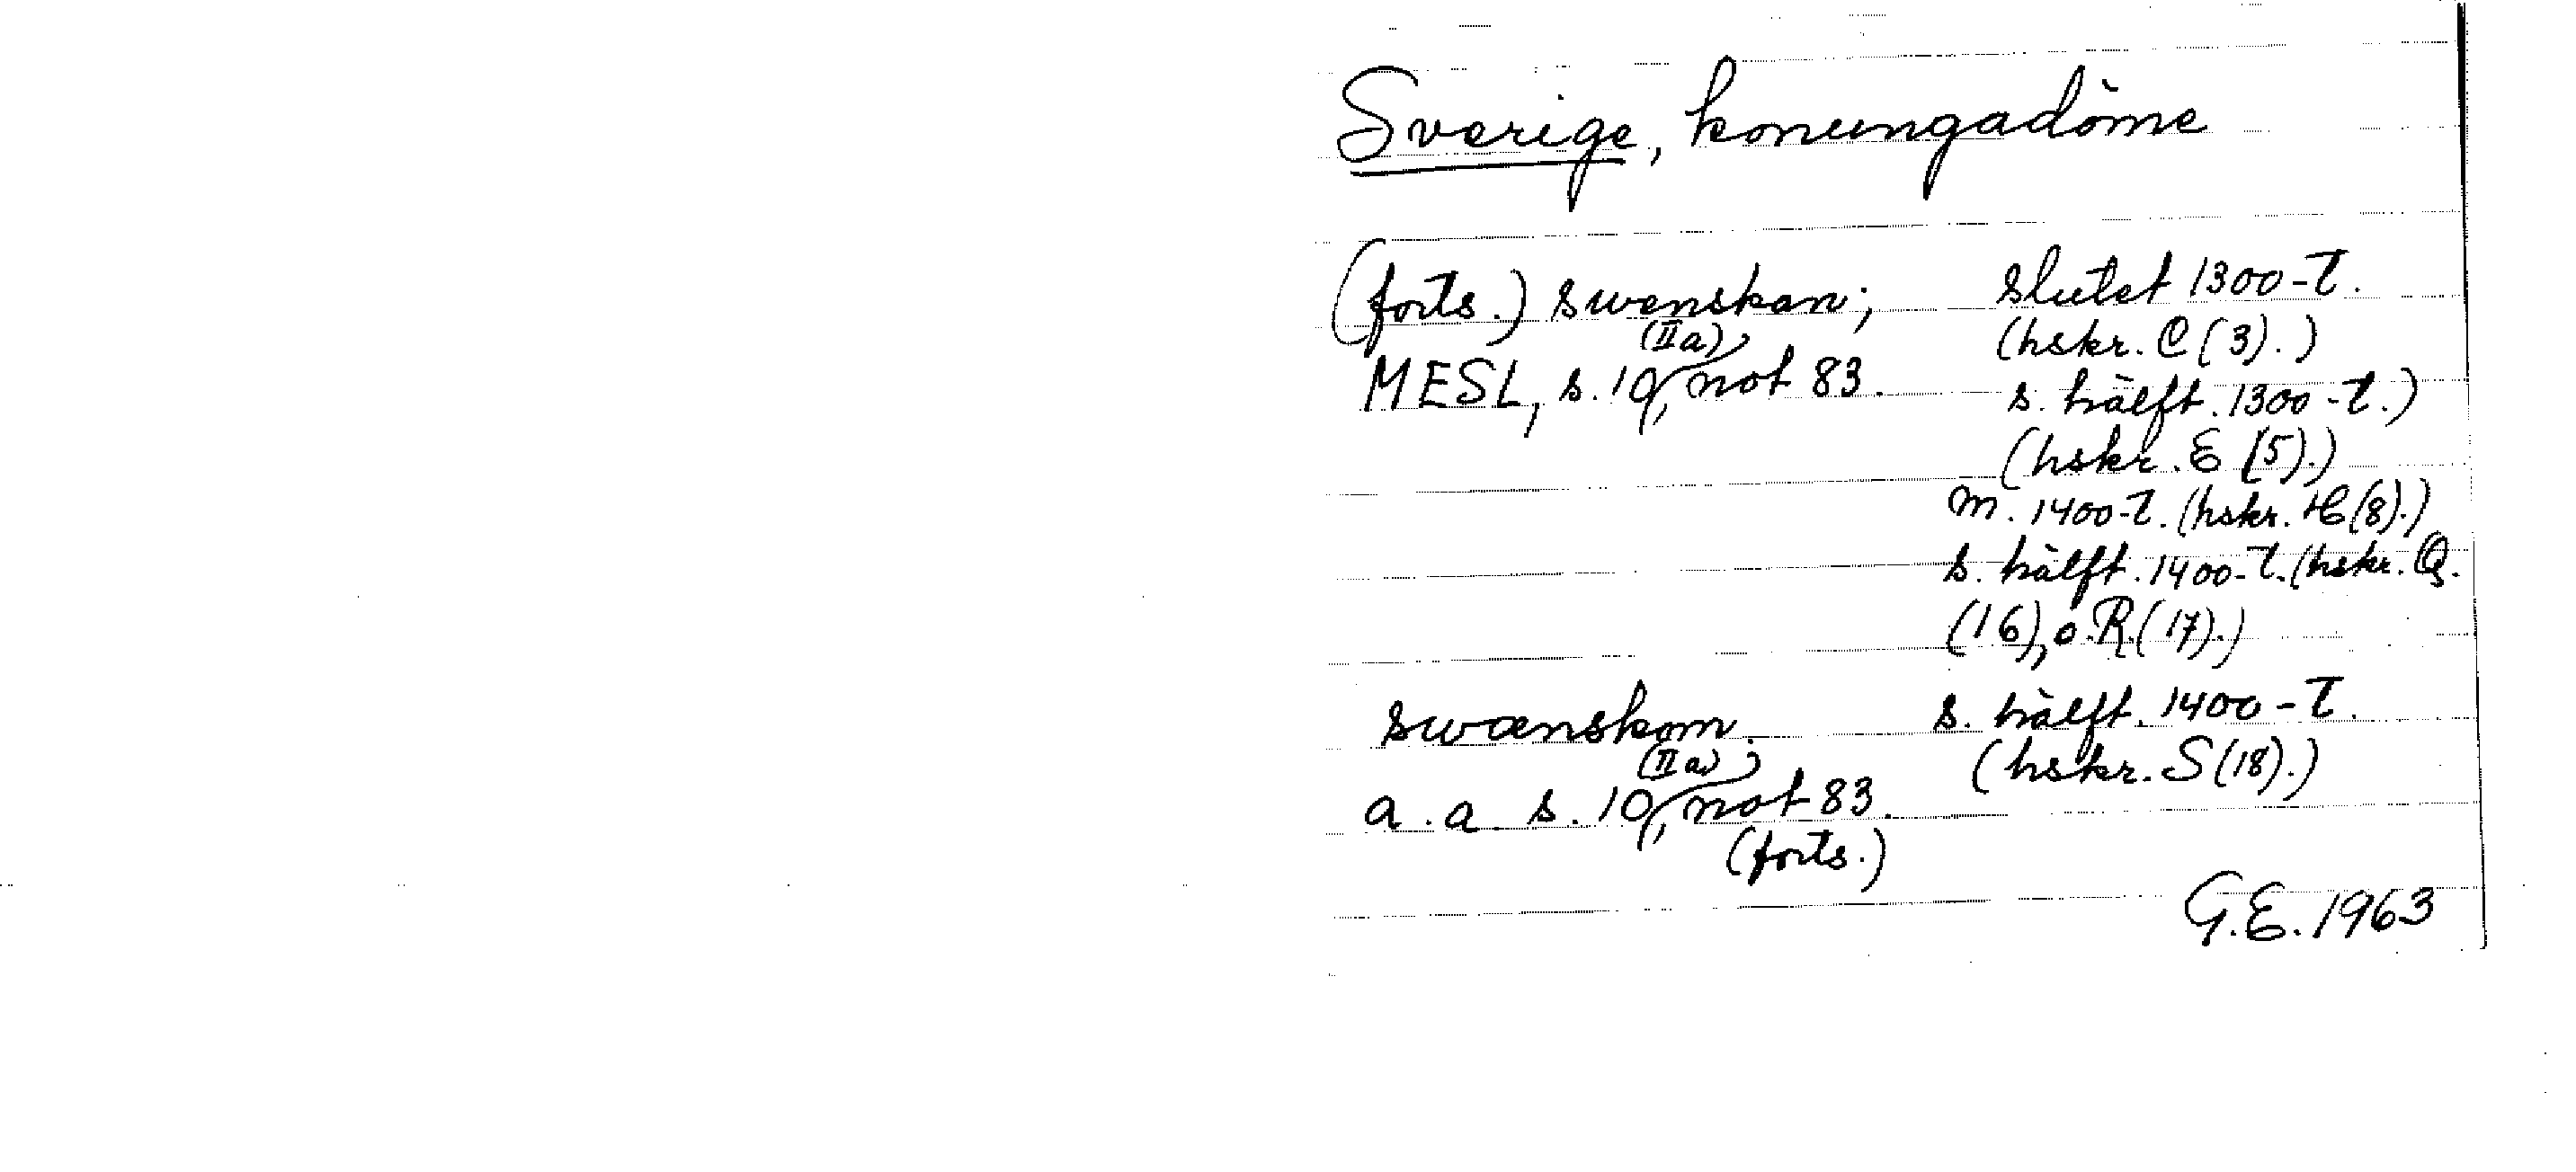 Sverige, konungadöme
(forts.) swenskan; slutet 1300-t.
(hskr. C (3).)
MESL, s. 10, (IIa), not 83. s. hälft. 1300-t.)
(hskr. E (5).)
m. 1400-t. (hskr. H (8).)
s. hälft. 1400-t. (hskr. Q.
(16), o. R. (17).)
swænskom. s. hälft. 1400-t.
(hskr. S (18).)
a. a. s. 10, (IIa), not 83.
(forts.)
G.E. 1963